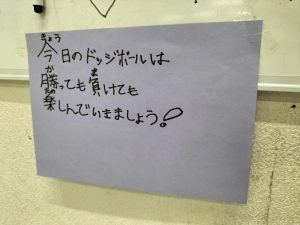 今日のドッジボールは
勝っても負けても
楽しんでいきましょう!